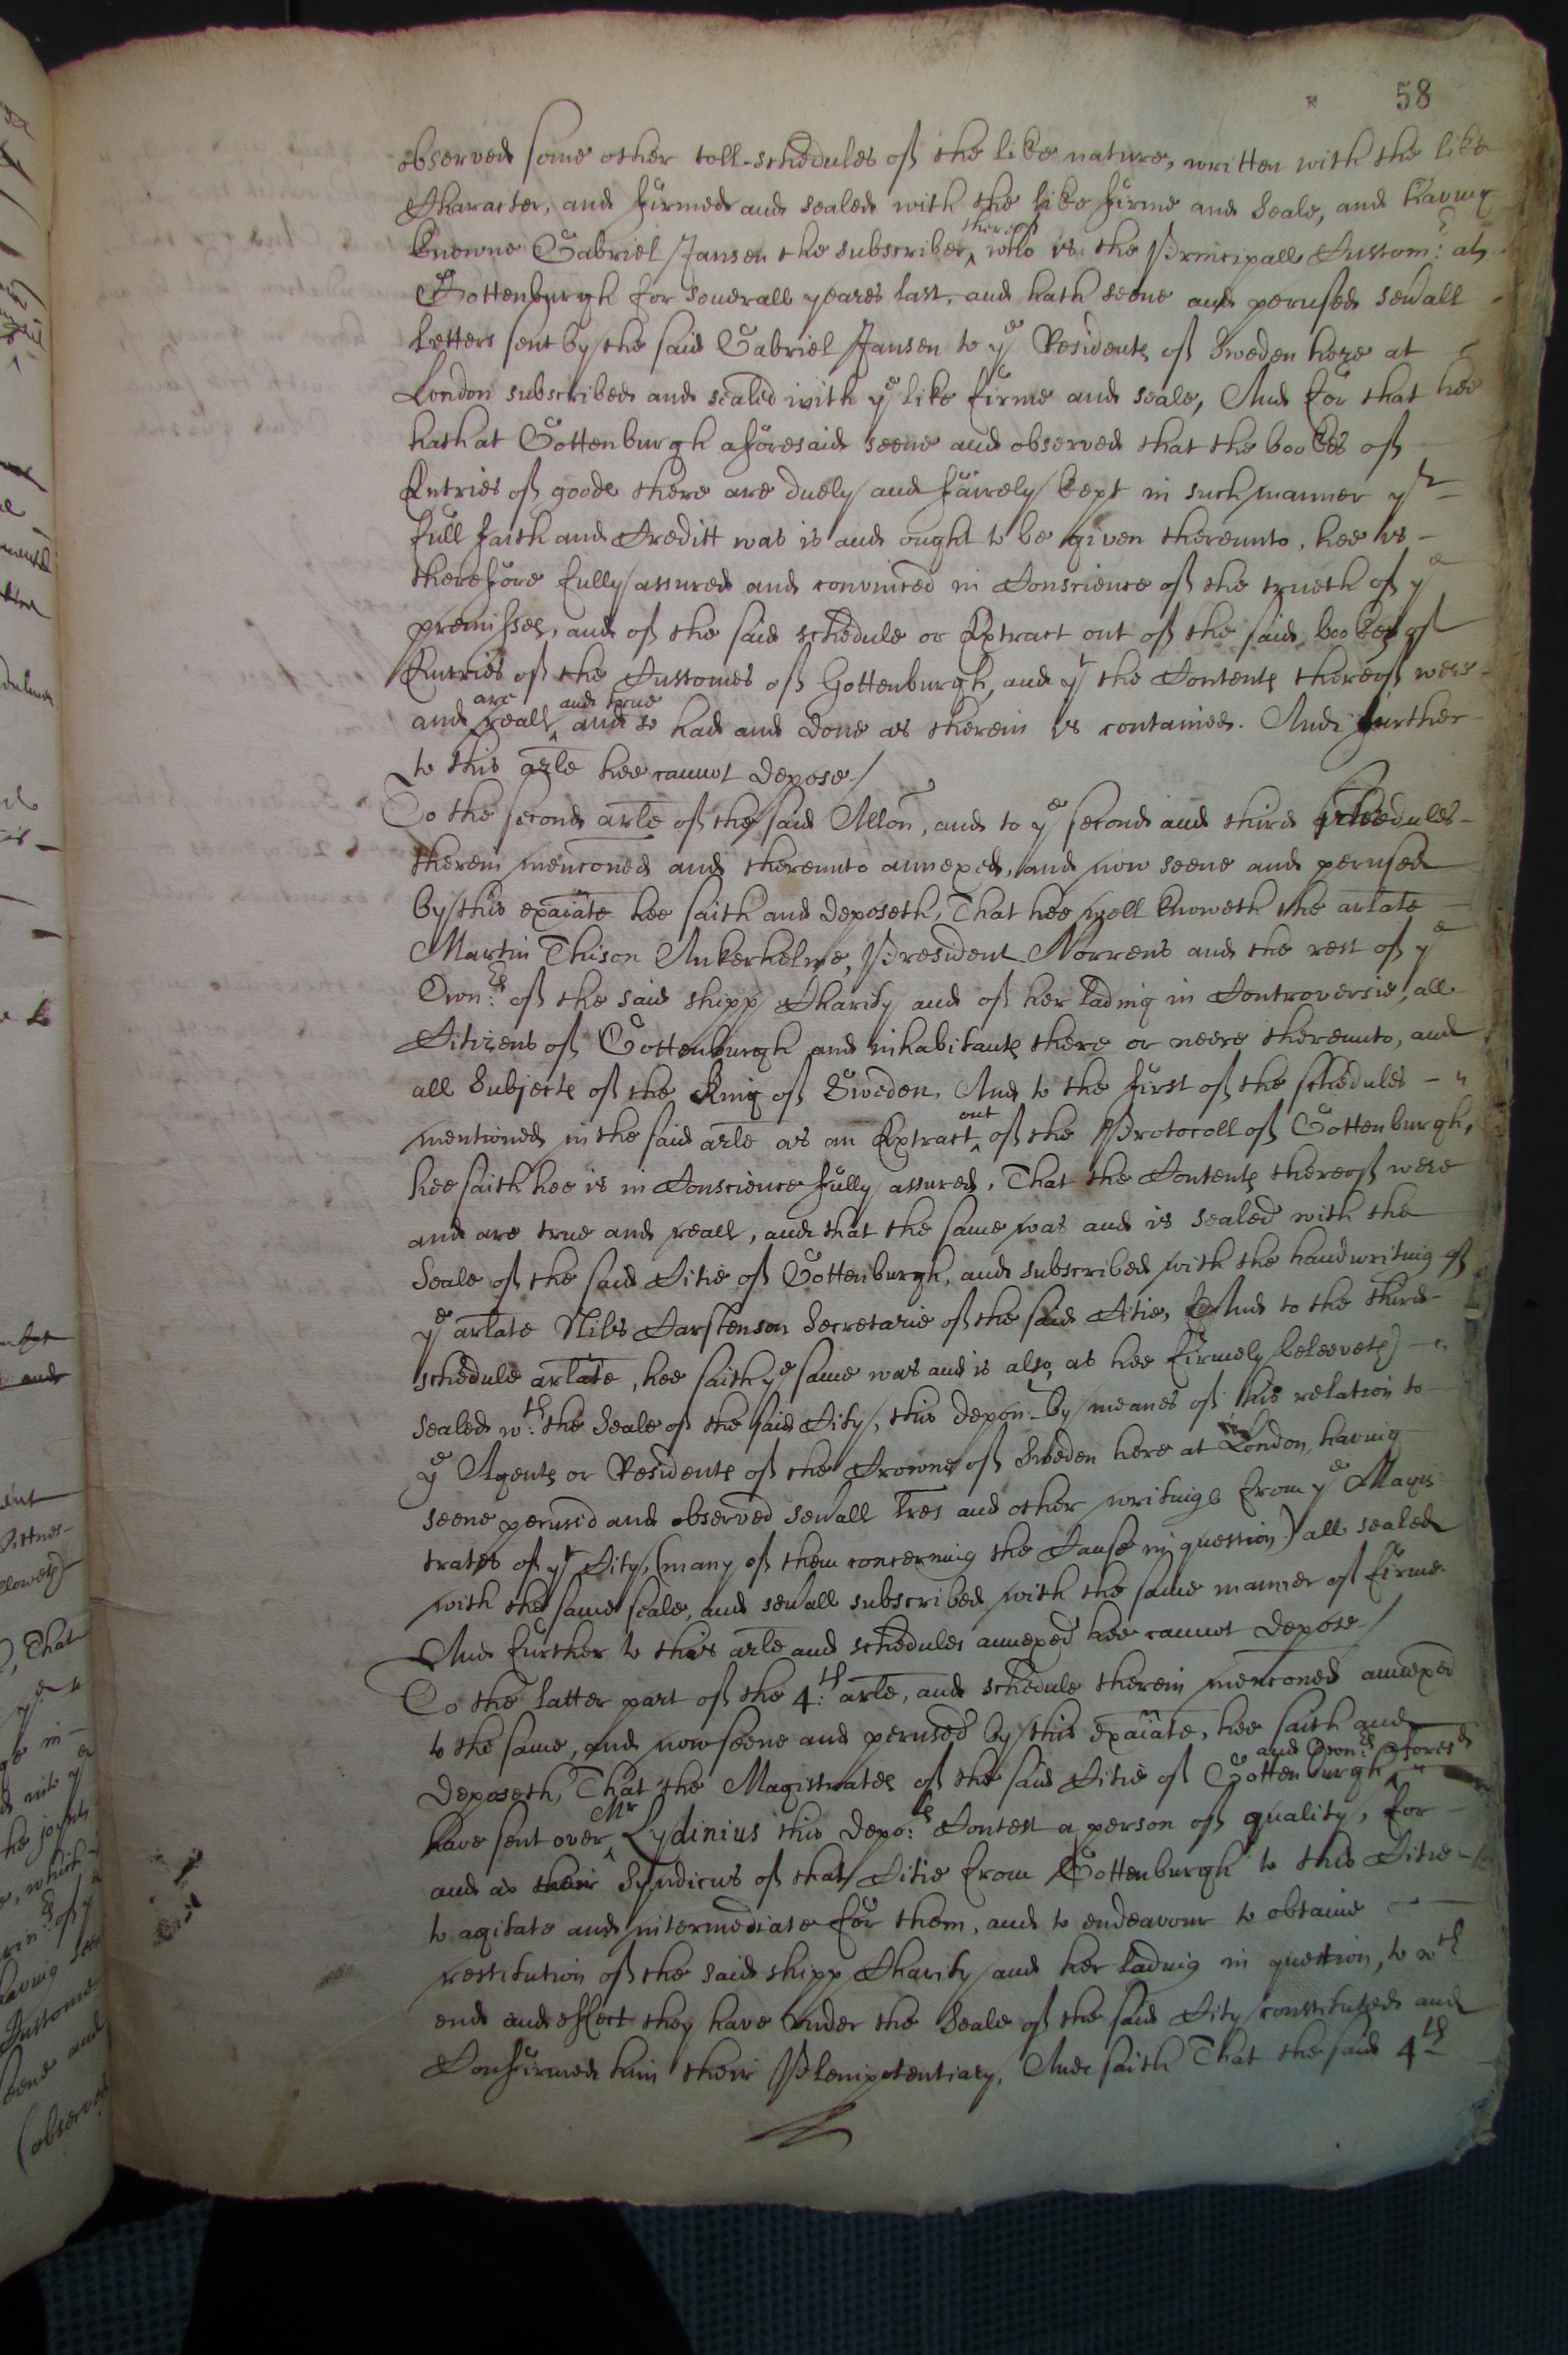 58
observed some other toll-schedules of the like nature, written with the like
Character, and firmed and sealed with the like firme and Seale, and having
knowne Gabriel Jansen the subscriber thereof who is the Principall Custom:r at
Gottenburgh for severall yeares last, and hath seene and perused sevall
Letters sent by the said Gabriel Jansen to ye Residents of Sweden here at
London subscribed and sealed with ye like firme and seale, And for that hee
hath at Gottenburgh aforesaid seene and observed that the bookes of
Entries of goods there are duely and fairely kept in such manner yt
full faith and Creditt was is and ought to be given thereunto, hee is
therefore fully assured and convinced in Conscience of the trueth of ye
premisses, and of the said schedule or Extract out of the said bookes of
Entries of the Customes of Gottenburgh, and yt the Contents thereof were
and are reall and true and so had and done as therein is contained. And further
to this arle hee cannot depose/
To the second arle of the said Allon, and to ye second and third schedules
therein menconed and thereunto annexed, and now seene and perused
by this exaiate hee saith and deposeth, That hee well knoweth the arlate
Martin Thison Ankerhelme, President Norrens and the rest of ye
Own:rs of the said shipp Charity and of her lading in Controversie, all
Citizens of Gottenburgh and inhabitants there or neere thereunto, and
all Subjects of the King of Sweden, And to the first of the schedules
mentioned in the said arle as an Extract out of the Protocoll of Gottenburgh,
hee saith hee is in Conscience fully assured, That the Contents thereof were
and are true and reall, and that the same was and is sealed with the
Seale of the said Citie of Gottenburgh, and subscribed with the handwriting of
ye arlate Niles Carstenson Secretarie of the said Citie, And to the third
schedule arlate, hee saith ye same was and is also, as hee firmely beleeveth)
sealed w:th the Seale of the said City, this depon:t by meanes of his relation to
ye Agents or Residents of the Crowne of Sweden here at London having
seene perused and observed sevall lres and other writings from ye Magis
trates of yt City, (many of them concerning the Cause in question) all sealed
with the same seale, and sevall subscribed with the same manner of firme.
And further to this arle and schedules annexed hee cannot depose/
To the latter part of the 4:th arle, and schedule therein menconed annexed
to the same, and now seene and perused by this exaiate, hee saith and
deposeth, That the Magistrates of the said Citie of Gottenburgh and Own:rs aforesd
have sent over Mr Lydinius this depo:ts Contest a person of quality, for
and as their Syndicus of that Citie from Gottenburgh to this Citie
to agitate and intermediate for them, and to endeavour to obtaine
restitution of the said shipp Charity and her lading in question, to wch
end and effect they have under the Seale of the said City constituted and
Confirmed him their Plenipotentiary, And saith That the said 4th